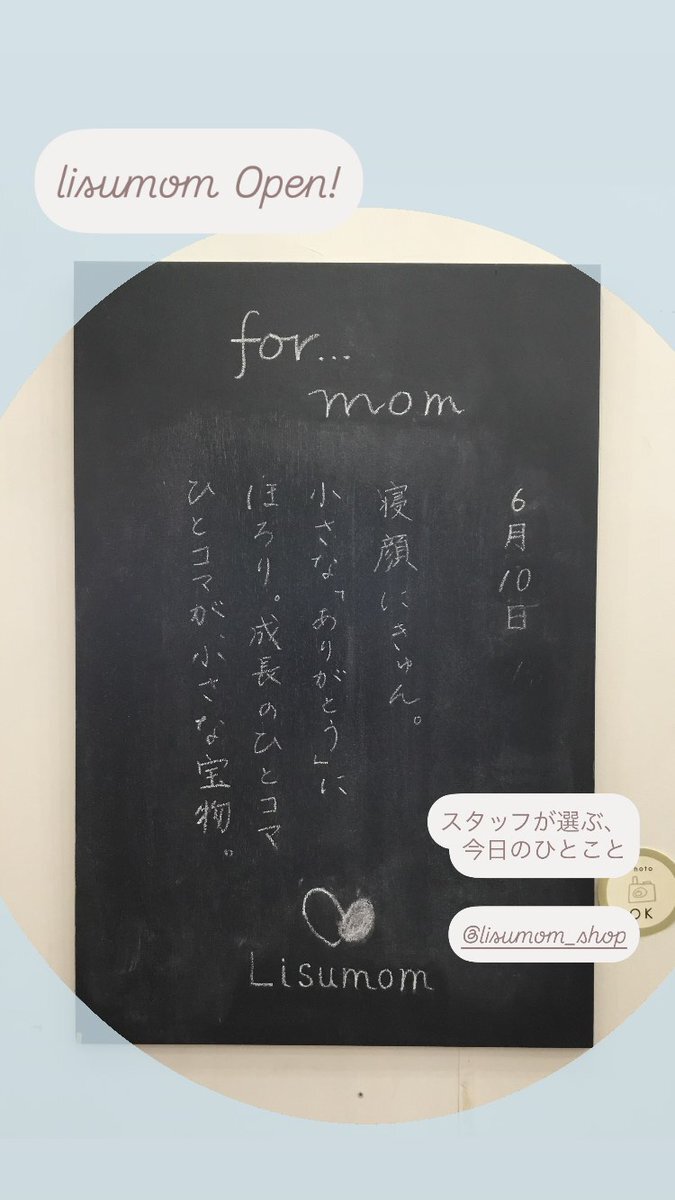 lisumom Open!
for...
mom
6月10日
寝顔にきゅん。
小さな「ありがとう」に
ほろり。成長のひとコマ
ひとコマが、小さな宝物。
スタッフが選ぶ、
今日のひとこと
OK
@lisumom_shop
Lisumom